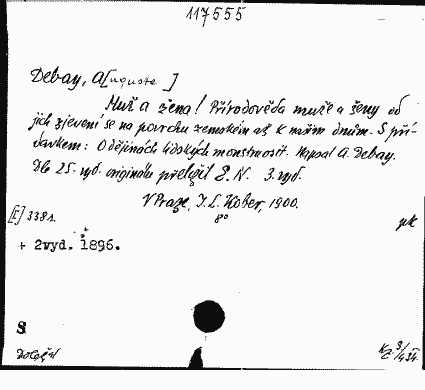 117555
Debay, A[uguste ]
Muž a žena! Přírodověda muže a ženy od
jich zjevení se na povrchu zemském až k našim dnům. S pří-
davkem: O dějinách lidských monstrosit. Napsal A. Debay.
Dle 25. vyd. originálu přeložil E. N. 3. vyd.
V Praze, I. L. Kober, 1900.
8°
[I] 338 s.
+ 2vyd. 1896.
S